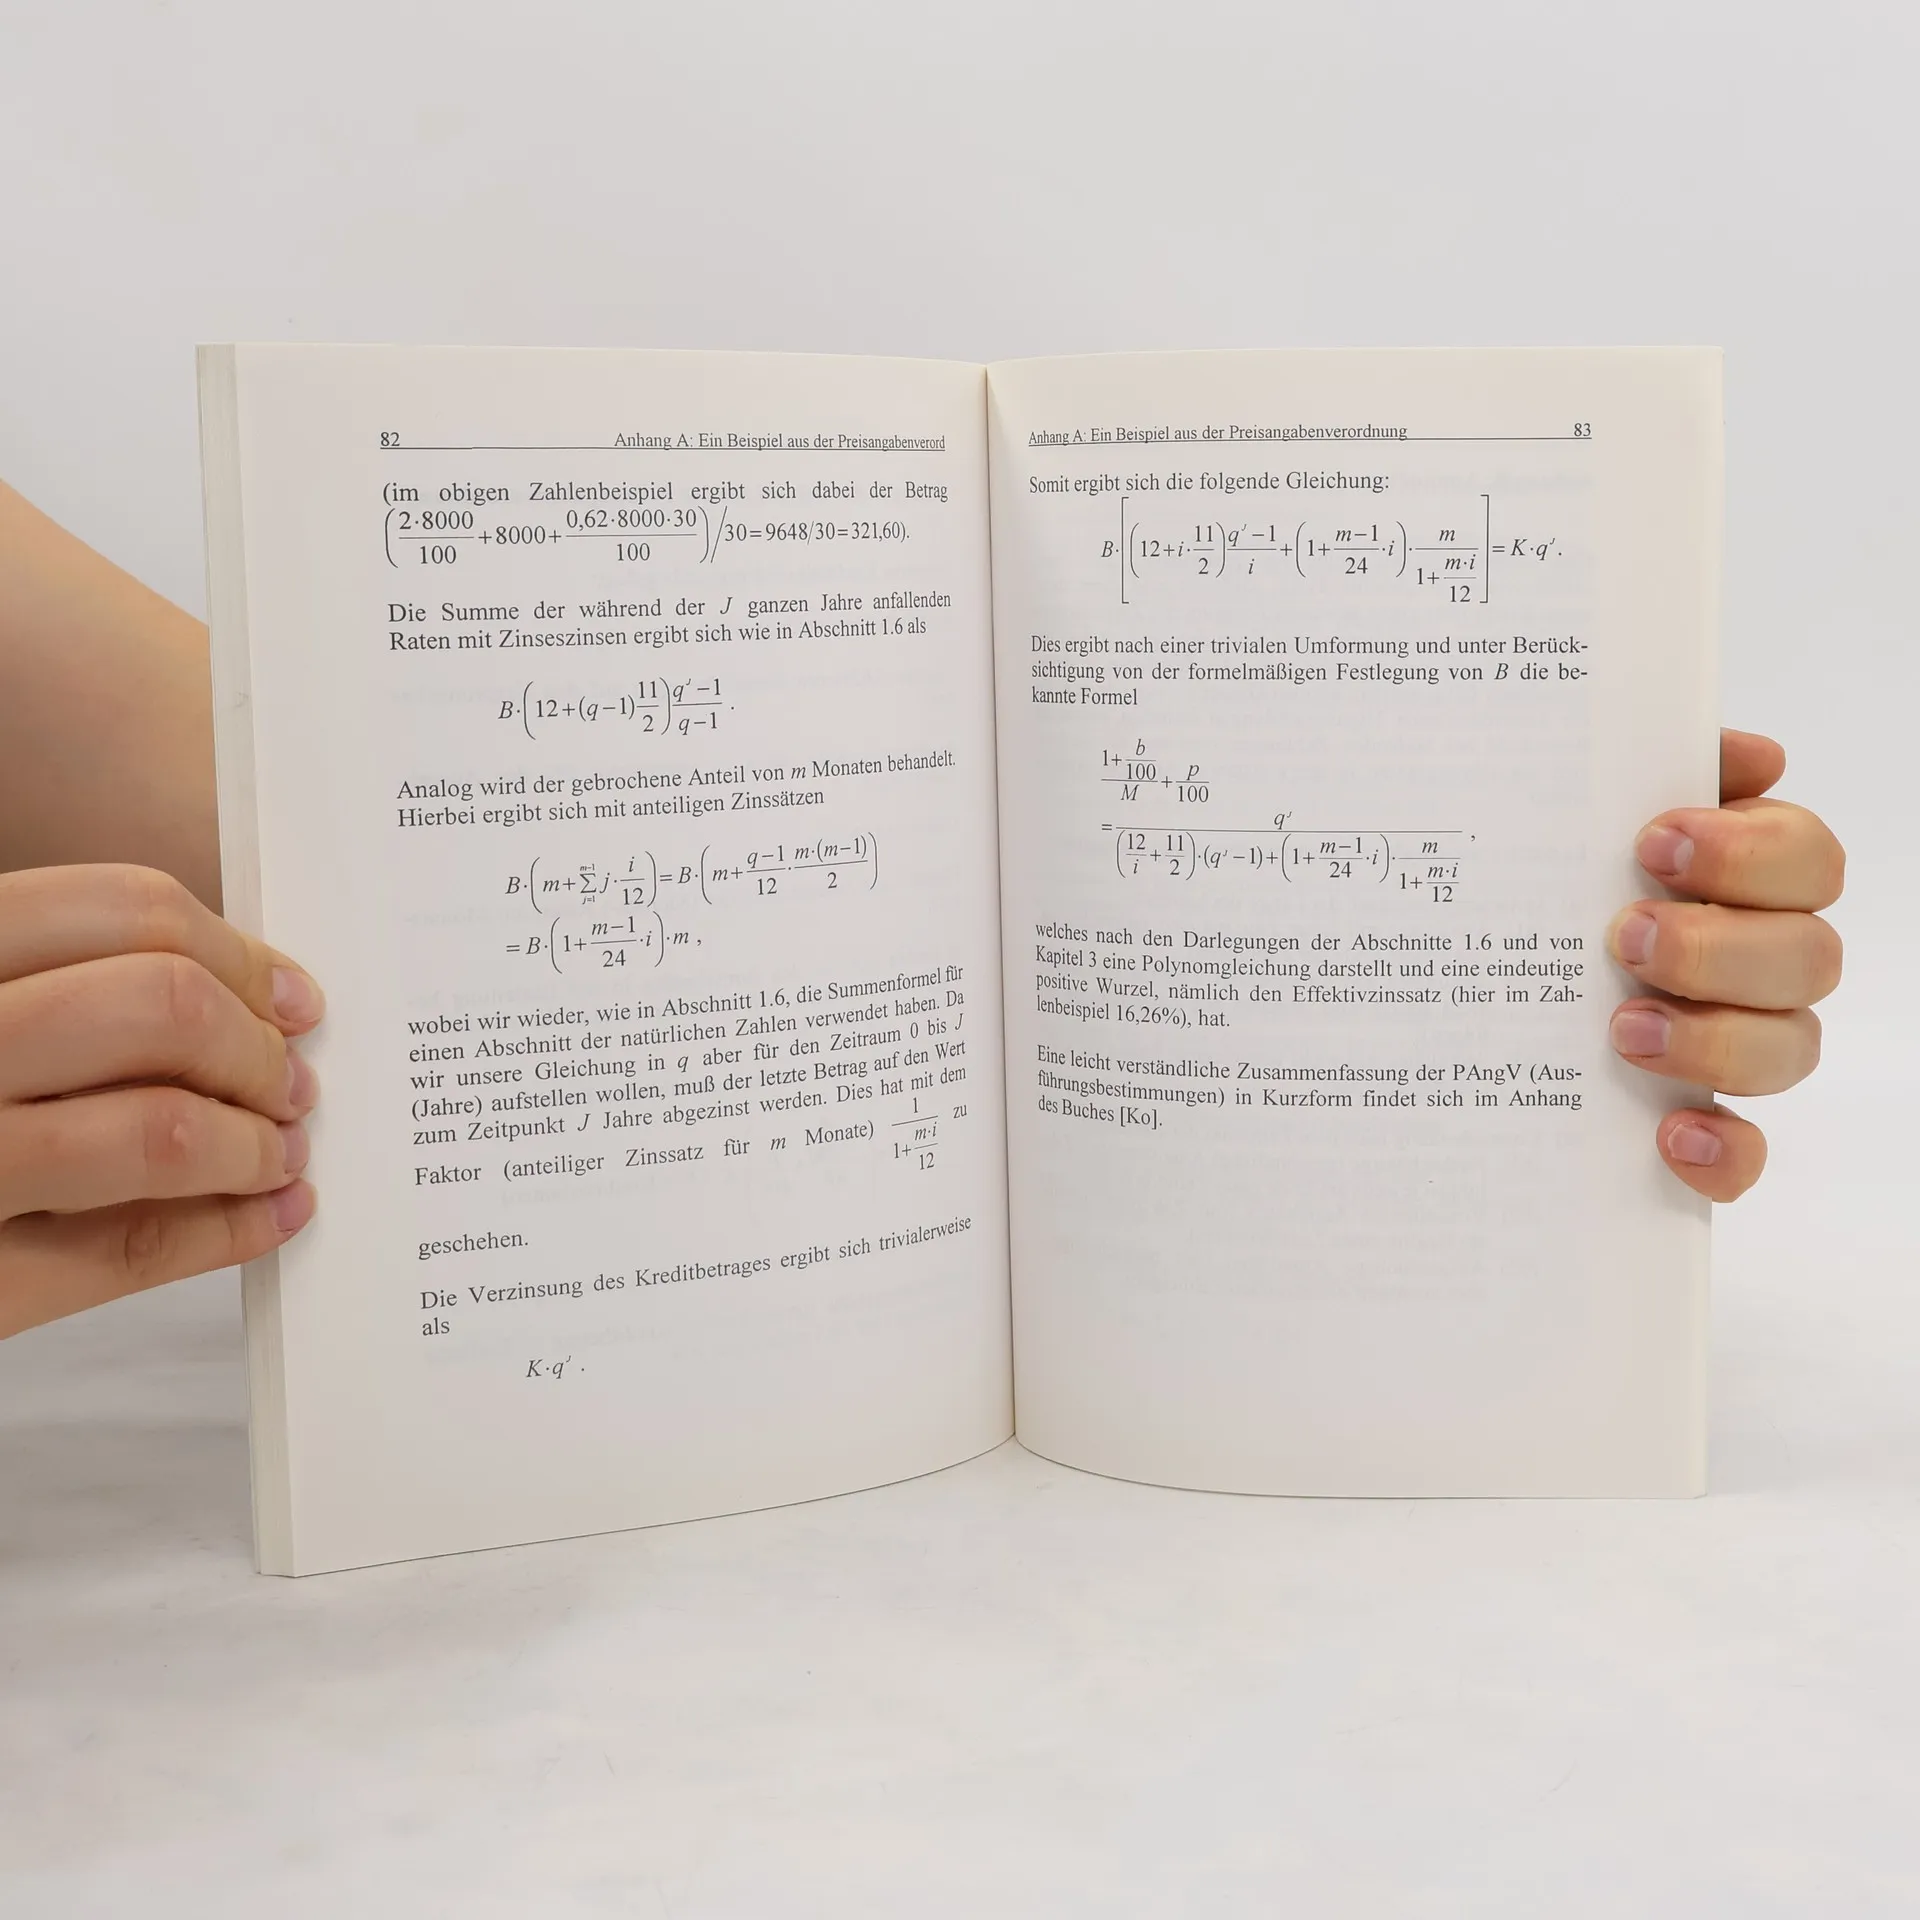 82 Anhang A: Ein Beispiel aus der Preisangabenverord
(im obigen Zahlenbeispiel ergibt sich dabei der Betrag
(2·8000/100 + 8000 + 0,62·8000·30/100)/30=9648/30=321,60).
Die Summe der während der J ganzen Jahre anfallenden
Raten mit Zinseszinsen ergibt sich wie in Abschnitt 1.6 als
B·(12+(q−1)11/2) (q^J−1)/(q−1) .
Analog wird der gebrochene Anteil von m Monaten behandelt.
Hierbei ergibt sich mit anteiligen Zinssätzen
B·(m+∑_{j=1}^{m−1} j·i/12) = B·(m+(q−1)/12·m·(m−1)/2)
= B·(1+(m−1)/24·i)·m ,
wobei wir wieder, wie in Abschnitt 1.6, die Summenformel für
einen Abschnitt der natürlichen Zahlen verwendet haben. Da
wir unsere Gleichung in q aber für den Zeitraum 0 bis J
(Jahre) aufstellen wollen, muß der letzte Betrag auf den Wert
zum Zeitpunkt J Jahre abgezinst werden. Dies hat mit dem
Faktor (anteiliger Zinssatz für m Monate) 1/(1+m·i/12) zu
geschehen.
Die Verzinsung des Kreditbetrages ergibt sich trivialerweise
als
K·q^J .
Anhang A: Ein Beispiel aus der Preisangabenverordnung 83
Somit ergibt sich die folgende Gleichung:
B·[(12+i·11/2) (q^J−1)/i + (1+(m−1)/24·i)·m/(1+m·i/12)] = K·q^J.
Dies ergibt nach einer trivialen Umformung und unter Berück-
sichtigung von der formelmäßigen Festlegung von B die be-
kannte Formel
(1+b/100)/M + p/100
= q^J/((12/i+11/2)·(q^J−1)+(1+(m−1)/24·i)·m/(1+m·i/12)) ,
welches nach den Darlegungen der Abschnitte 1.6 und von
Kapitel 3 eine Polynomgleichung darstellt und eine eindeutige
positive Wurzel, nämlich den Effektivzinssatz (hier im Zah-
lenbeispiel 16,26%), hat.
Eine leicht verständliche Zusammenfassung der PAngV (Aus-
führungsbestimmungen) in Kurzform findet sich im Anhang
des Buches [Ko].